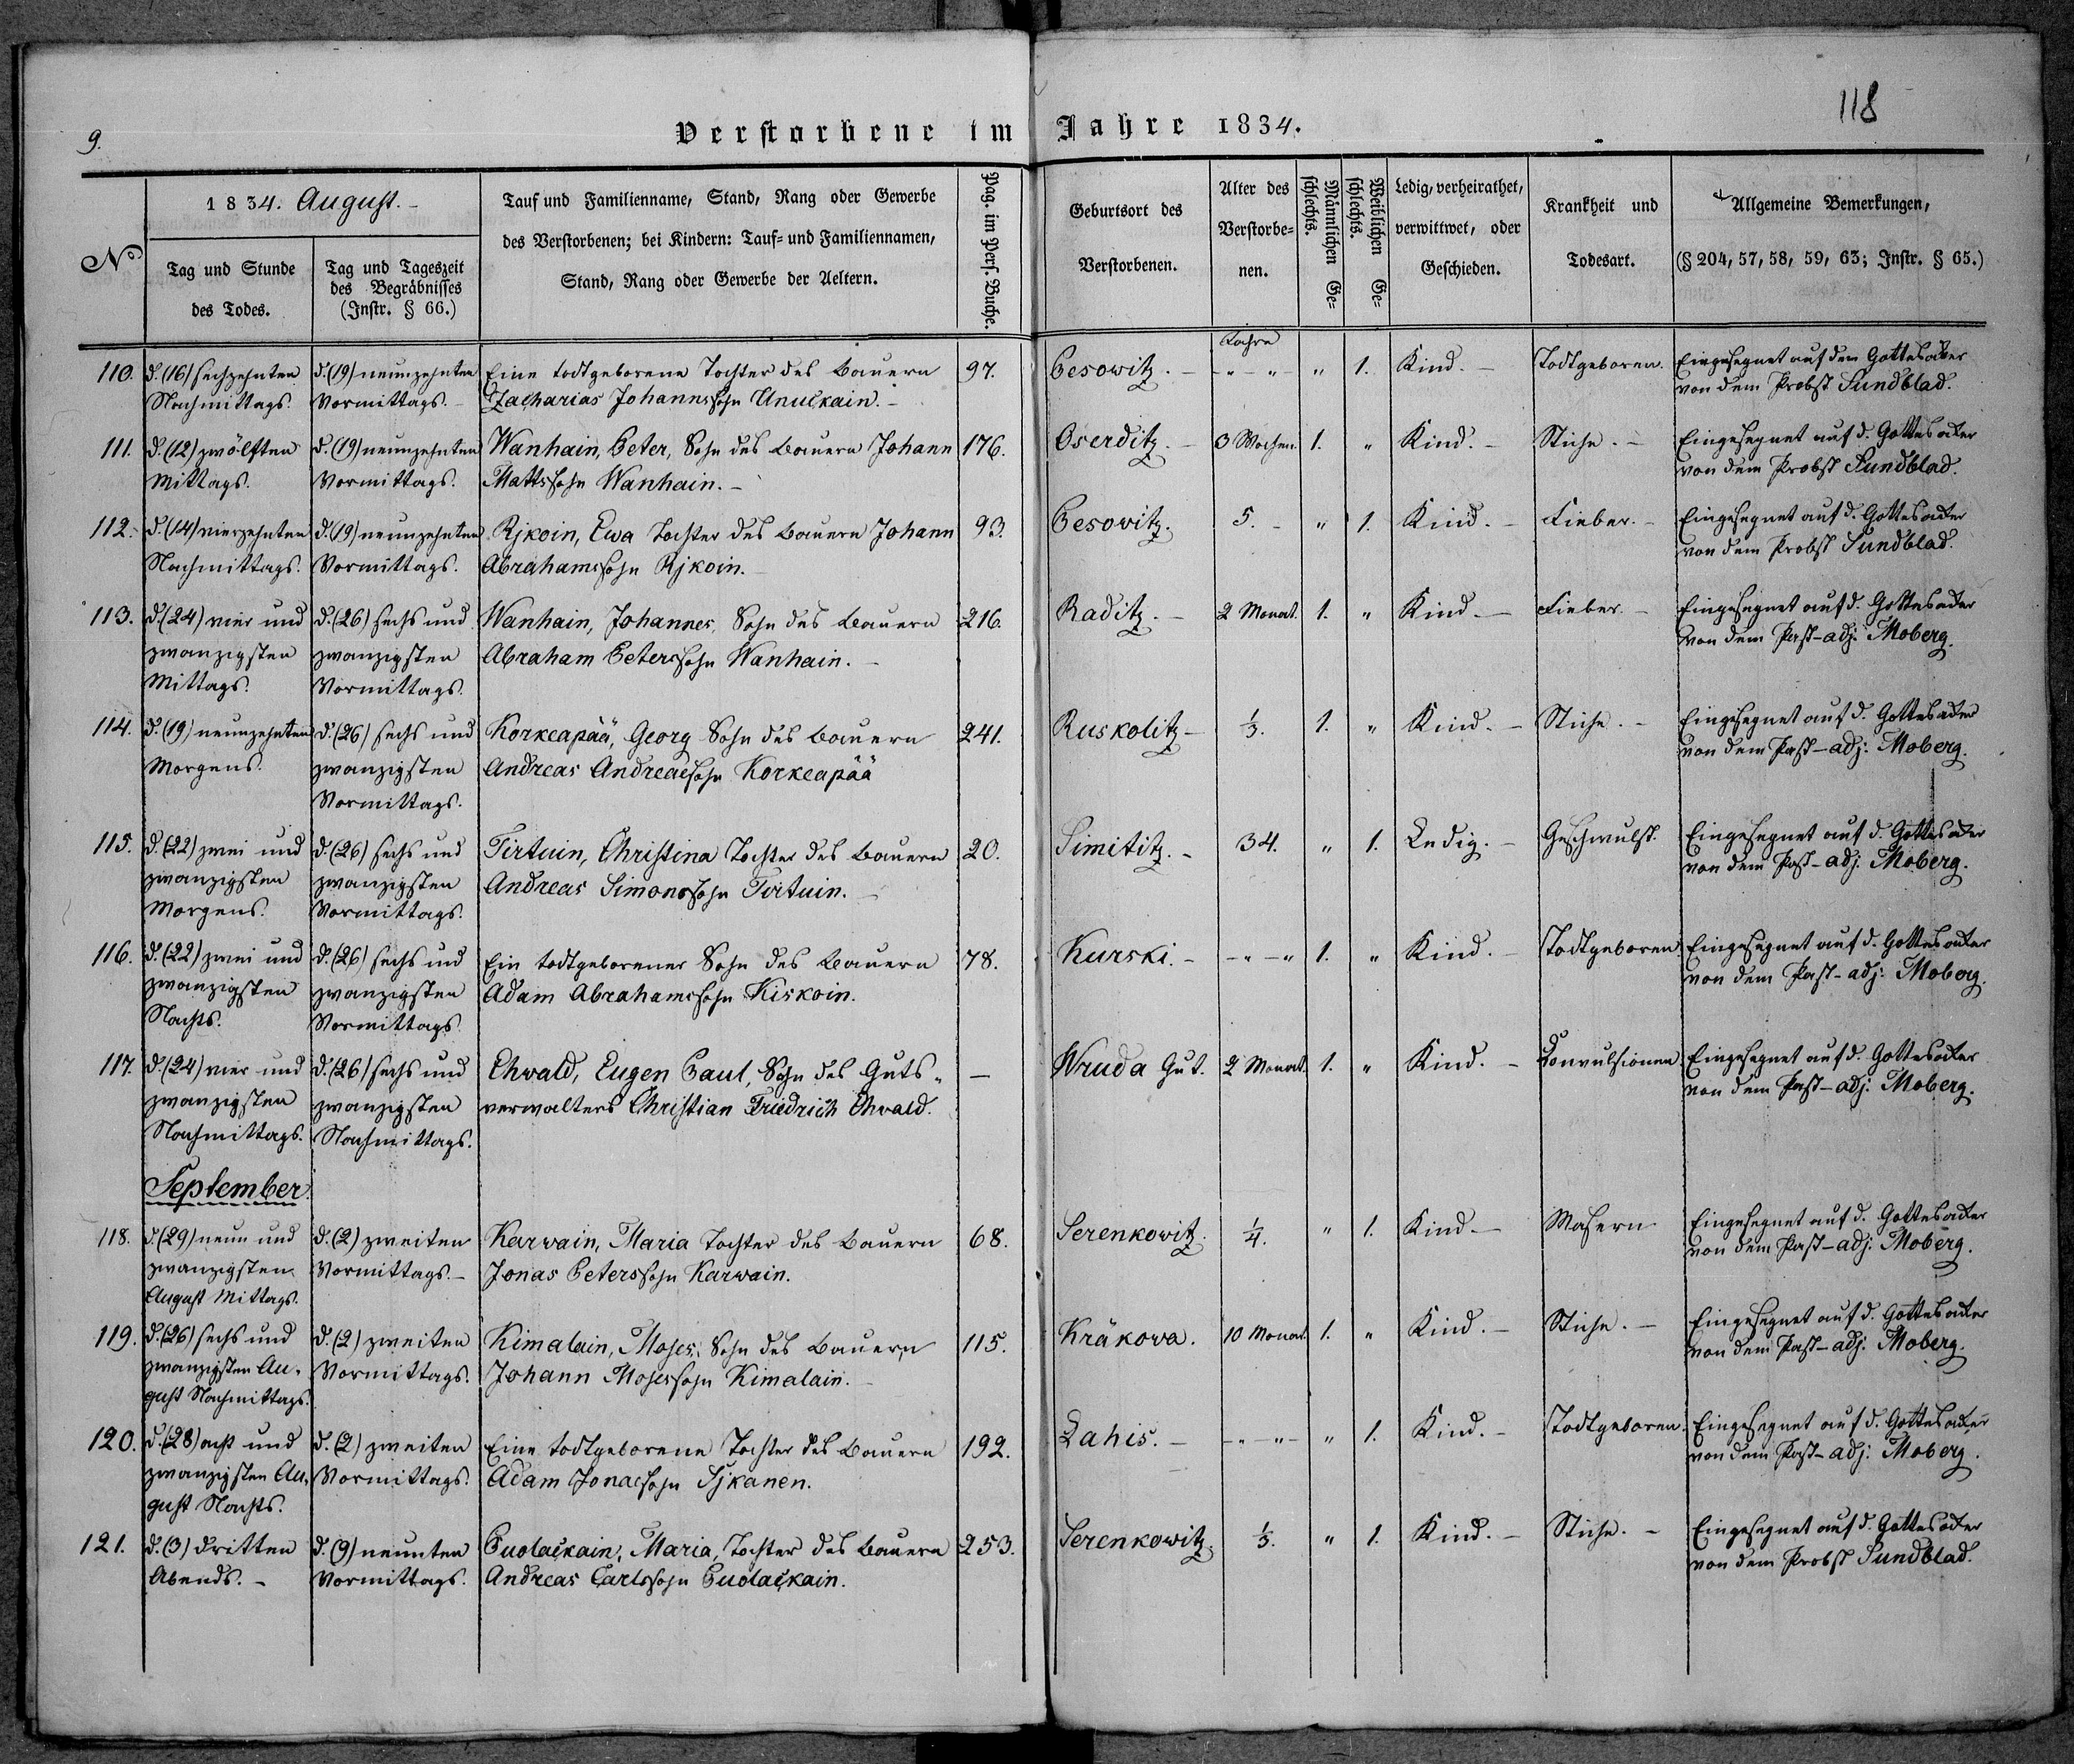 118
9.
Verstorbene im Jahre 1834.
N°
1834. August.-
Tag und Stunde
des Todes.
Tag und Tageszeit
des Begräbnisses
(Instr. § 66.)
Tauf und Familienname, Stand, Rang oder Gewerbe
des Verstorbenen; bei Kindern: Tauf- und Familiennamen,
Stand, Rang oder Gewerbe der Aeltern.
Pag. im Pers. Buche.
Geburtsort des
Verstorbenen.
Alter des
Verstorbe-
nen.
Männlichen Ge-
schlechts.
Weiblichen Ge-
schlechts.
Ledig, verheirathet,
verwittwet, oder
Geschieden.
Krankheit und
Todesart.
Allgemeine Bemerkungen,
(§ 204, 57, 58, 59, 63; Instr. § 65.)
Jahre
110. d. (16) sechzehnten d. (19) neunzehnten Eine todtgeborene Tochter des Bauern 97. Pesowitz. - - " - " - " 1. Kind. - Todtgeboren. Eingesegnet auf dem Gottesacker
Nachmittags. Vormittags. - Zacharias Johannssohn Anuckain. - von dem Probst Sundblad.
111. d. (12) zwölften d. (19) neunzehnten Wanhain, Peter, Sohn des Bauern Johann 176. Oserditz. - 3 Wochen. 1. " Kind. - Stiche. - Eingesegnet auf d. Gottesacker
Mittags. Vormittags. Mattssohn Wanhain. - von dem Probst Sundblad.
112. d. (14) vierzehnten d. (19) neunzehnten Rjkoin, Ewa Tochter des Bauern Johann 93. Pesowitz. 5. - " 1. Kind. - Fieber. - Eingesegnet auf d. Gottesacker
Nachmittags. Vormittags. Abrahamssohn Rjkoin. von dem Probst Sundblad.
113. d. (24) vier und d. (26) sechs und Wanhain, Johannes, Sohn des Bauern 216. Raditz. - 2 Monat. 1. " Kind. - Fieber. - Eingesegnet auf d. Gottesacker
zwanzigsten zwanzigsten Abraham Peterssohn Wanhain. - von dem Past-adj: Moberg.
Mittags. Vormittags.
114. d. (19) neunzehnten d. (26) sechs und Korkeapää, Georg Sohn des Bauern 241. Ruskolitz - 1/3. 1. " Kind. - Stiche. - Eingesegnet auf d. Gottesacker
Morgens. zwanzigsten Andreas Andreassohn Korkeapää von dem Past-adj: Moberg.
Vormittags.
115. d. (22) zwei und d. (26) sechs und Tirtuin, Christina Tochter des Bauern 20. Simititz. - 34. " 1. Ledig. - Geschwulst. Eingesegnet auf d. Gottesacker
zwanzigsten zwanzigsten Andreas Simonssohn Tirtuin. - von dem Past-adj: Moberg.
Morgens. Vormittags.
116. d. (22) zwei und d. (26) sechs und Ein todtgeborener Sohn des Bauern 78. Kurski. - - " - " 1. " Kind. - Todtgeboren. Eingesegnet auf d. Gottesacker
zwanzigsten zwanzigsten Adam Abrahamssohn Kiskoin. von dem Past-adj: Moberg.
Nachts. Vormittags.
117. d. (24) vier und d. (26) sechs und Ehwald, Eugen Paul, Sohn des Guts- - Wruda Gut. 2 Monat. 1. " Kind. - Convulsionen Eingesegnet auf d. Gottesacker
zwanzigsten zwanzigsten verwalters Christian Friedrich Ehwald. von dem Past-adj: Moberg.
Nachmittags. Nachmittags.
September.
118. d. (29) neun und d. (2) zweiten Karwain, Maria Tochter des Bauern 68. Serenkowitz. 1/4. " 1. Kind. - Masern Eingesegnet auf d. Gottesacker
zwanzigsten Vormittags. - Jonas Peterssohn Karwain. von dem Past-adj: Moberg.
August Mittags.
119. d. (26) sechs und d. (2) zweiten Kimalain, Moses, Sohn des Bauern 115. Kräkowa. 10 Monat. 1. " Kind. - Stiche. - Eingesegnet auf d. Gottesacker
zwanzigsten Au- Vormittags. Johann Mosessohn Kimalain. - von dem Past-adj: Moberg.
gust Nachmittags.
120. d. (28) acht und d. (2) zweiten Eine todtgeborene Tochter des Bauern 192. Lahis. - - " - " - " 1. Kind. - Todtgeboren. Eingesegnet auf d. Gottesacker
zwanzigsten Au- Vormittags. Adam Jonassohn Sjkanen. von dem Past-adj: Moberg.
gust Nachts.
121. d. (3) dritten d. (9) neunten Puolackain, Maria, Tochter des Bauern 253. Serenkowitz. 1/3. " 1. Kind. - Stiche. - Eingesegnet auf d. Gottesacker
Abends. - Vormittags. Andreas Carlssohn Puolackain. von dem Probst Sundblad.